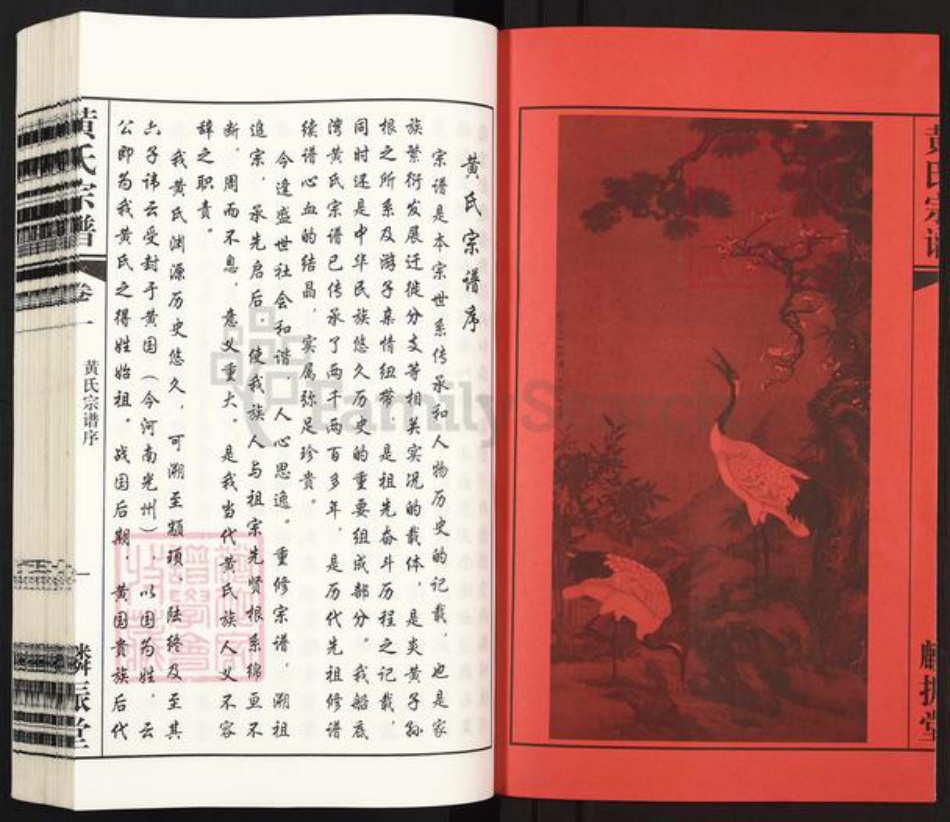 黄氏宗谱序
宗谱是本宗世系传承和人物历史的记载，也是家
族繁衍发展迁徙分支等相关实况的载体，是炎黄子孙
根之所系及游子亲情纽带，是祖先奋斗历程之记载，
同时还是中华民族悠久历史的重要组成部分。我船底
湾黄氏宗谱已传承了两千两百多年，是历代先祖修谱
续谱心血的结晶，实属弥足珍贵。
今逢盛世社会和谐，人心思逸。重修宗谱，溯祖
追宗，承先启后，使我族人与祖宗先贤根系绵亘不
断，周而不息，意义重大，是我当代黄氏族人义不容
辞之职责。
我黄氏渊源历史悠久，可溯至颛顼、陆终及至其
六子讳云受封于黄国（今河南光州），以国为姓，云
公即为我黄氏之得姓始祖。战国后期，黄国贵族后代
黄氏宗谱
卷一
黄氏宗谱序
一
麟振堂
黄氏宗谱
麟振堂
FamilySearch